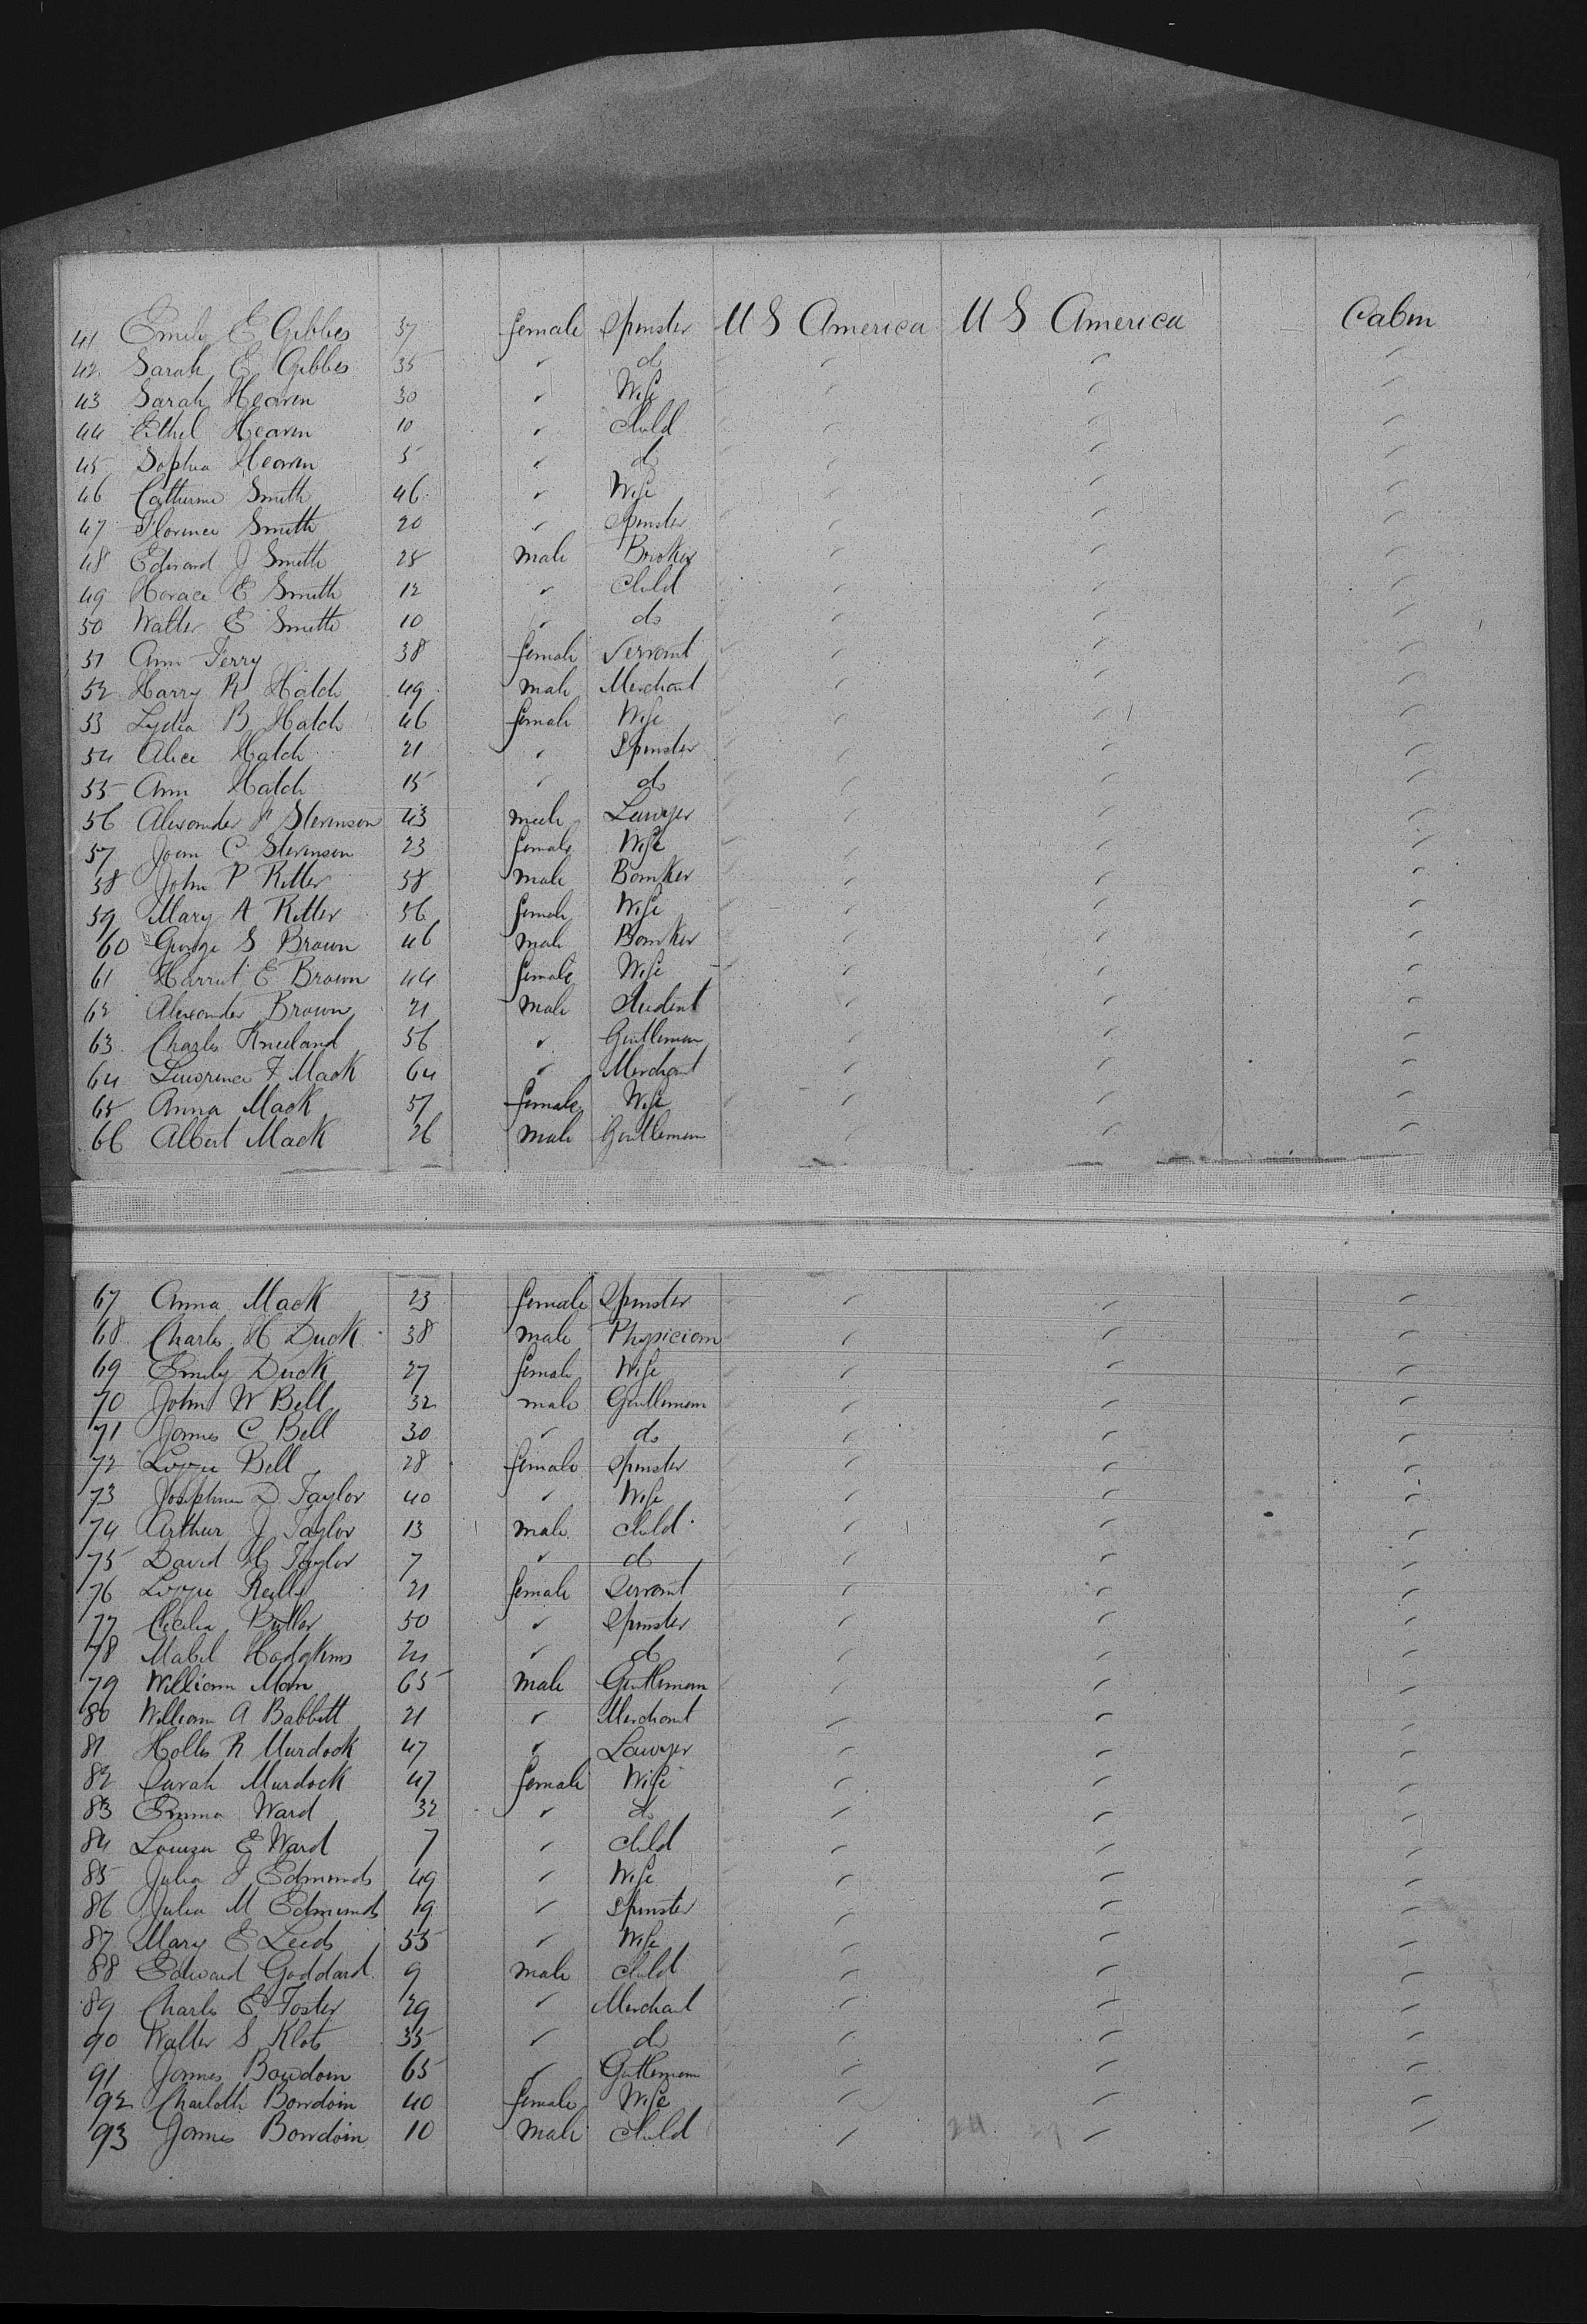 41 Emily E Gibbes 37 female Spinster U S America U S America Cabin
42 Sarah E Gibbes 35 " do " " "
43 Sarah Hearn 30 " Wife " " "
44 Ethel Hearn 10 " Child " " "
45 Sophia Hearn 5 " do " " "
46 Catherine Smith 46 " Wife " " "
47 Florence Smith 20 " Spinster " " "
48 Edward J Smith 25 male Broker " " "
49 Horace E Smith 12 " Child " " "
50 Walter E Smith 10 " do " " "
51 Ann Terry 38 female Servant " " "
52 Harry R Hatch 49 male Merchant " " "
53 Lydia B Hatch 46 female Wife " " "
54 Alice Hatch 21 " Spinster " " "
55 Ann Hatch 15 " do " " "
56 Alexander Stevenson 43 male Lawyer " " "
57 Joan C Stevenson 23 female Wife " " "
58 John P Ritter 58 male Banker " " "
59 Mary A Ritter 56 female Wife " " "
60 George S Brown 46 male Banker " " "
61 Harriet E Brown 44 female Wife " " "
62 Alexander Brown 21 male Student " " "
63 Charles Kneeland 56 " Gentleman " " "
64 Lawrence F Mack 64 " Merchant " " "
65 Anna Mack 57 female Wife " " "
66 Albert Mack 26 male Gentleman " " "
67 Anna Mack 23 female Spinster " " "
68 Charles H Duck 38 male Physician " " "
69 Emily Duck 27 female Wife " " "
70 John W Bell 32 male Gentleman " " "
71 James C Bell 30 " do " " "
72 Lizzie Bell 28 female Spinster " " "
73 Josephine D Taylor 40 " Wife " " "
74 Arthur J Taylor 13 male child " " "
75 David H Taylor 7 " do " " "
76 Lizzie Reilly 21 female Servant " " "
77 Cecilia Butler 50 " Spinster " " "
78 Mabel Hodgkins " do " " "
79 William Man 65 male Gentleman " " "
80 William A Babbitt 21 " Merchant " " "
81 Hollis R Murdock 47 " Lawyer " " "
82 Sarah Murdock 47 female Wife " " "
83 Emma Ward 32 " do " " "
84 Louiza E Ward 7 " child " " "
85 Julia Edmunds 49 " Wife " " "
86 Julia M Edmunds 19 " Spinster " " "
87 Mary E Leeds 55 " Wife " " "
88 Edward Goddard 9 male child " " "
89 Charles E Foster 29 " Merchant " " "
90 Walter S Klots 35 " do " " "
91 James Bowdoin 65 " Gentleman " " "
92 Charlotte Bowdoin 40 female Wife " " "
93 James Bowdoin 10 male child " " "